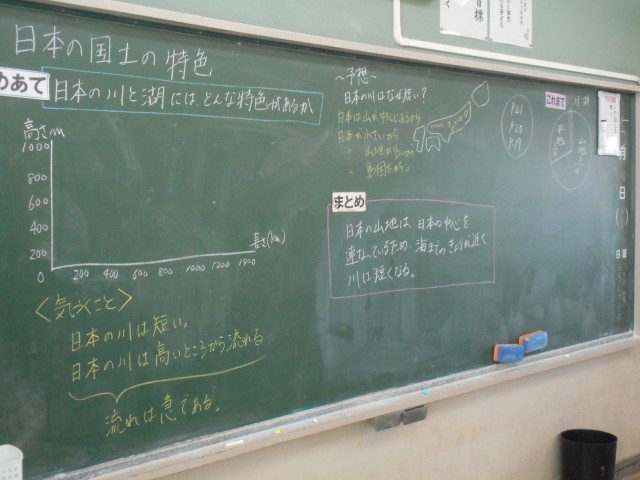 日本の国土の特色
めあて
日本の川と湖にはどんな特色があるか
高さm
1000
800
600
400
200
0
200 400 600 800 1000 1200 1400
長さ(km)
<気づくこと>
日本の川は短い。
日本の川は高いところから流れる
流れは急である。
～予想～
日本の川はなぜ短い?
日本は山が中心にあるから
日本が小さいから
〃 山地が多いから
〃 島国だから
まとめ
日本の山地は、日本の中心を
連なっているため、海までのきょりが近く
川は短くなる。
P21
P20
P19
これまで
山地
平地
月
日
目標